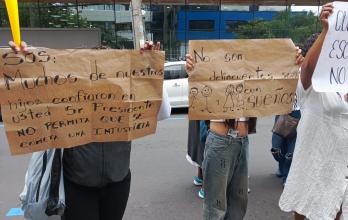 SOS:
Muchos de nuestros
hijos confiaron en
usted Sr Presidente
NO PERMITA QUE SE
COMETA UNA INJUSTICIA
No son
delincuentes son
con
SUEÑOS